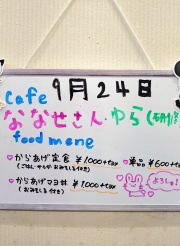 9月24日
Cafe
ななせさん・ゆら(研修
food mene
♡からあげ定食 ¥1000+tax
(ごはん・サラダ・おみそしる付き)
・単品 ¥600+tax
♡からあげマヨ丼 ¥1000+tax
(おみそしる付き)
よろしゅ!